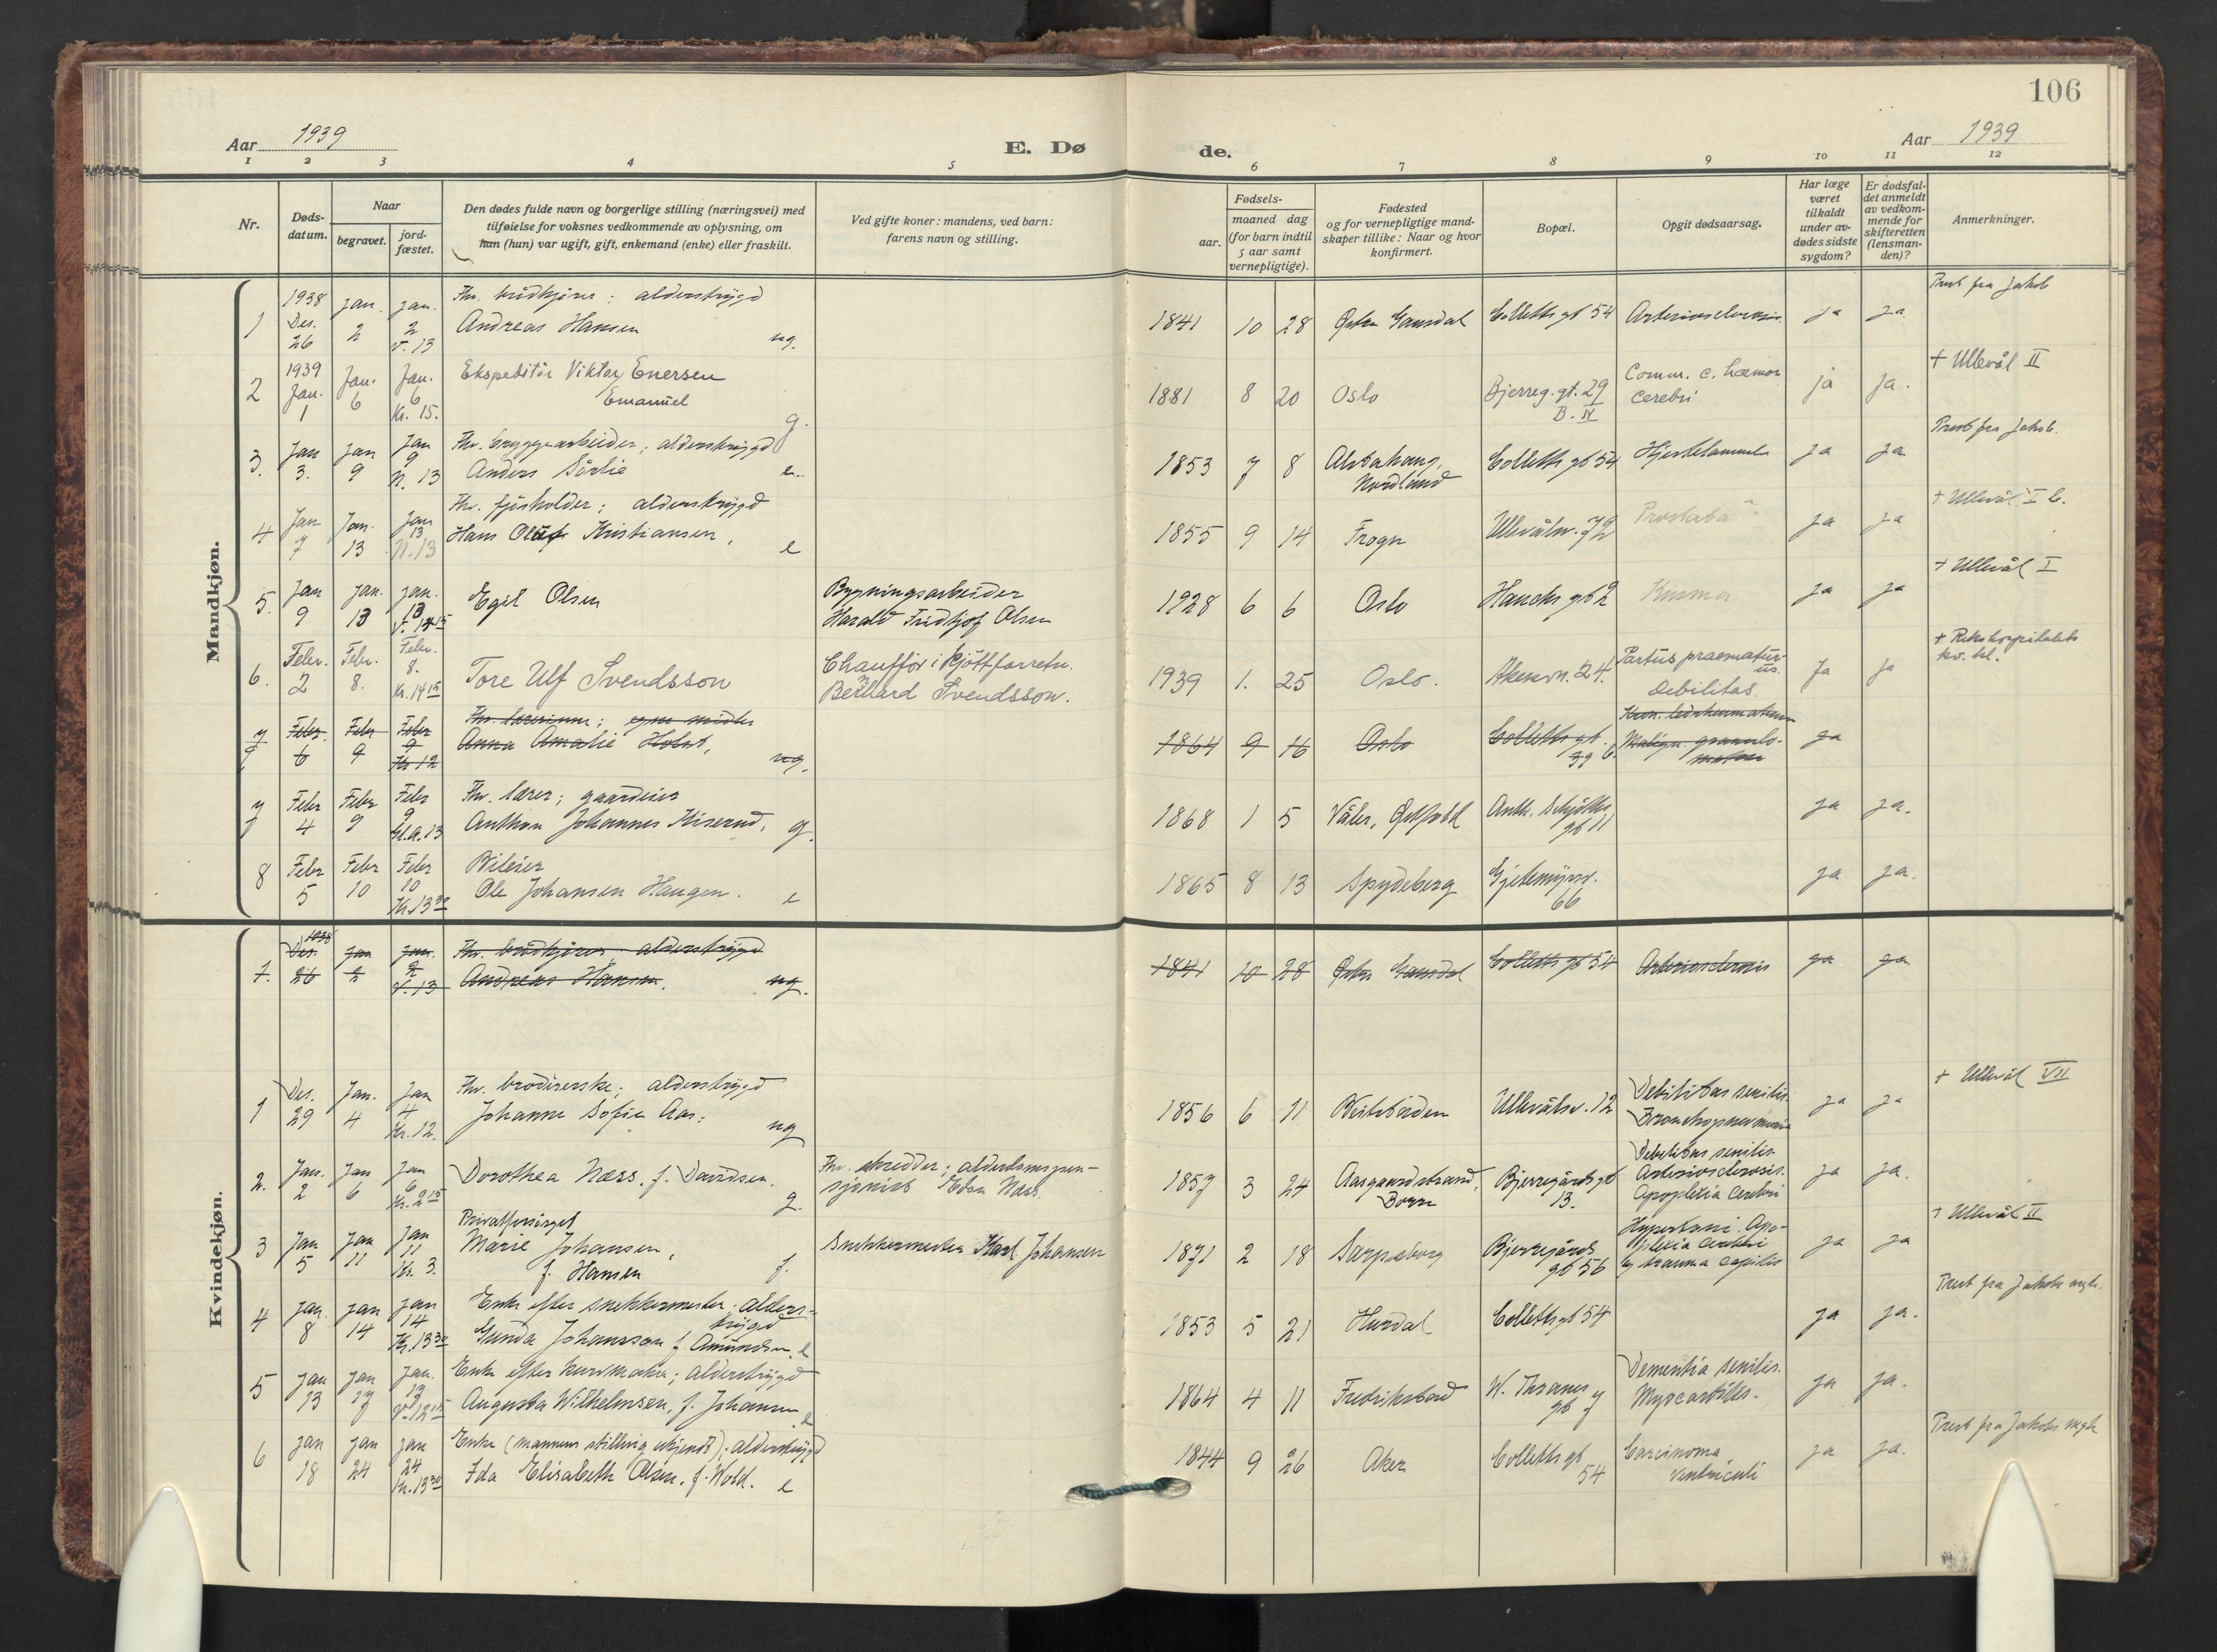 106
Aar 1939
E. Dø
de.
Aar 1939
1 2 3 4 5 6 7 8 9 10 11 12
Nr.
Døds-
datum.
Naar
begravet.
jord-
fæstet.
Den dødes fulde navn og borgerlige stilling (næringsvei) med
tilføielse for voksnes vedkommende av oplysning, om
han (hun) var ugift, gift, enkemand (enke) eller fraskilt.
Ved gifte koner: mandens, ved barn:
farens navn og stilling.
Fødsels-
aar.
maaned dag
(for barn indtil
5 aar samt
vernepligtige).
Fødested
og for vernepligtige mand-
skaper tillike: Naar og hvor
konfirmert.
Bopæl.
Opgit dødsaarsag.
Har læge
været
tilkaldt
under av-
dødes sidste
sygdom?
Er dødsfal-
det anmeldt
av vedkom-
mende for
skifteretten
(lensman-
den)?
Anmerkninger.
Mandkjøn.
1 1938 Des. 26 Jan. 2 Jan. 2 V. 13 Fhv. brødkjører; alderstrygd
Andreas Hansen ug. 1841 10 28 Østre Gausdal Colletts gt 54 Arteriosclerosis ja ja Prest fra Jakob
2 1939 Jan. 1 Jan. 6 Jan. 6 Kr. 15. Ekspeditör Viktor Enersen
Emanuel g. 1881 8 20 Oslo Bjerreg.gt. 29 B. IV Comm. c. hæmor cerebri ja ja. + Ullevål II
3. Jan 3. Jan 9 Jan 9 N. 13 Fhv. bryggearbeider; alderstrygd
Anders Sørlie e. 1853 7 8 Alstahaug, Nordland Colletts gt 54 Hjertelammelse ja ja Prest fra Jakob.
4 Jan 7 Jan. 13 Jan 13 N. 13 Fhv. fjøsholder; alderstrygd
Hans Oluf Kristiansen, e 1855 9 14 Frogn Ullevålsv. 72 ja ja + Ullevål I
5. Jan 9 Jan. 13 Jan. 13 Egil Olsen Bygningsarbeider
Harald Fridtjof Olsen 1928 6 6 Oslo Hauchs gt 2 ja ja + Ullevål I
6. Febr. 2 Febr. 8. Febr. 8. Kr. 14 15 Tore Ulf Svendsson Chauffør i kjöttforretn.
Bernhard Svendsson. 1939 1. 25 Oslo. Akersvn. 24. Partus praematur-
us.
Debilitas. Ja ja + Rikshospitalets
kv. kl.
7 Febr. 6 Febr 9 Febr 9 Kr 12 Fhv. lærerinne;
Anna Amalie Holst, ug. 1864 9 16 Oslo Colletts gt. 39 Kron. leddrheumatisme
Malign. granulo-
matose ja
7 Febr 4 Febr 9 Febr 9 Gl.A. 13 Fhv. lærer; gaardeier
Anthon Johannes Kiserud, g. 1868 1 5 Våler, Østfold Anth. Schjøths gt 11 ja ja.
8 Febr 5 Febr 10 Febr 10 Kr. 13 30 Bileier
Ole Johansen Haugen. e 1865 8 13 Spydeberg Gjetemyrsv. 66 ja ja.
Kvindekjøn.
1. 1938 Des. 26 Jan 2 Jan. 2 V. 13 Fhv. brødkjører, alderstrygd
Andreas Hansen. ug. 1841 10 28 Østre Gausdal Colletts gt 54 Arteriosclerosis ja ja
1 Des. 29 Jan. 4 Jan 4 Kr. 12. Fhv. brodererske; alderstrygd
Johanne Sofie Aas. ug 1856 6 11 Ullevålsv. 12 Debilitas senilis.
Bronchopneumoni ja ja + Ullevål VII
2. Jan. 2 Jan 6 Jan 6 Dorothea Næss, f. Davidsen. g. Fhv. skredder; alderdomspen-
sjonist Næss. 1857 3 24 Aasgaardstrand, Borre Bjerregårds gt 13. Debilitas senilis
Arteriosclerosis.
Apoplexia cerebri ja ja.
3 Jan 5 Jan 11 Jan 11 Kr. 3. Privatforsørget
Marie Johansen,
f. Hansen f. Snekkermester Karl Johansen 1871 2 18 Sarpsborg Bjerregårds gt 56 Hypertoni. Apo-
plexia cerebri
og trauma capitis ja ja + Ullevål II
4 Jan. 8 Jan 14 Jan 14 Kr. 13 30 Enke efter snekkermester; alders-
trygd
Gunda Johansson f. Amundsen. e 1853 5 21 Hurdal Colletts gt 54 ja ja. Prest fra Jakobs mgh.
5 Jan 13 Jan 17 Jan. 17 V. 12 15 Enke efter kurvmaker; alderstrygd
Augusta Wilhelmsen, f. Johansen e 1864 4 11 Fredrikstad W. Thranes gt 7 Dementia senilis.
Myocarditis. ja ja.
6 Jan 18 Jan 24 Jan 24 Kr. 13 30 Enke (mannens stilling ukjendt); alderstrygd
Ida Elisabeth Olsen, f. Wold. e 1844 9 26 Aker Colletts gt 54 Carcinoma
ventriculi ja ja. Prest fra Jakobs mgh